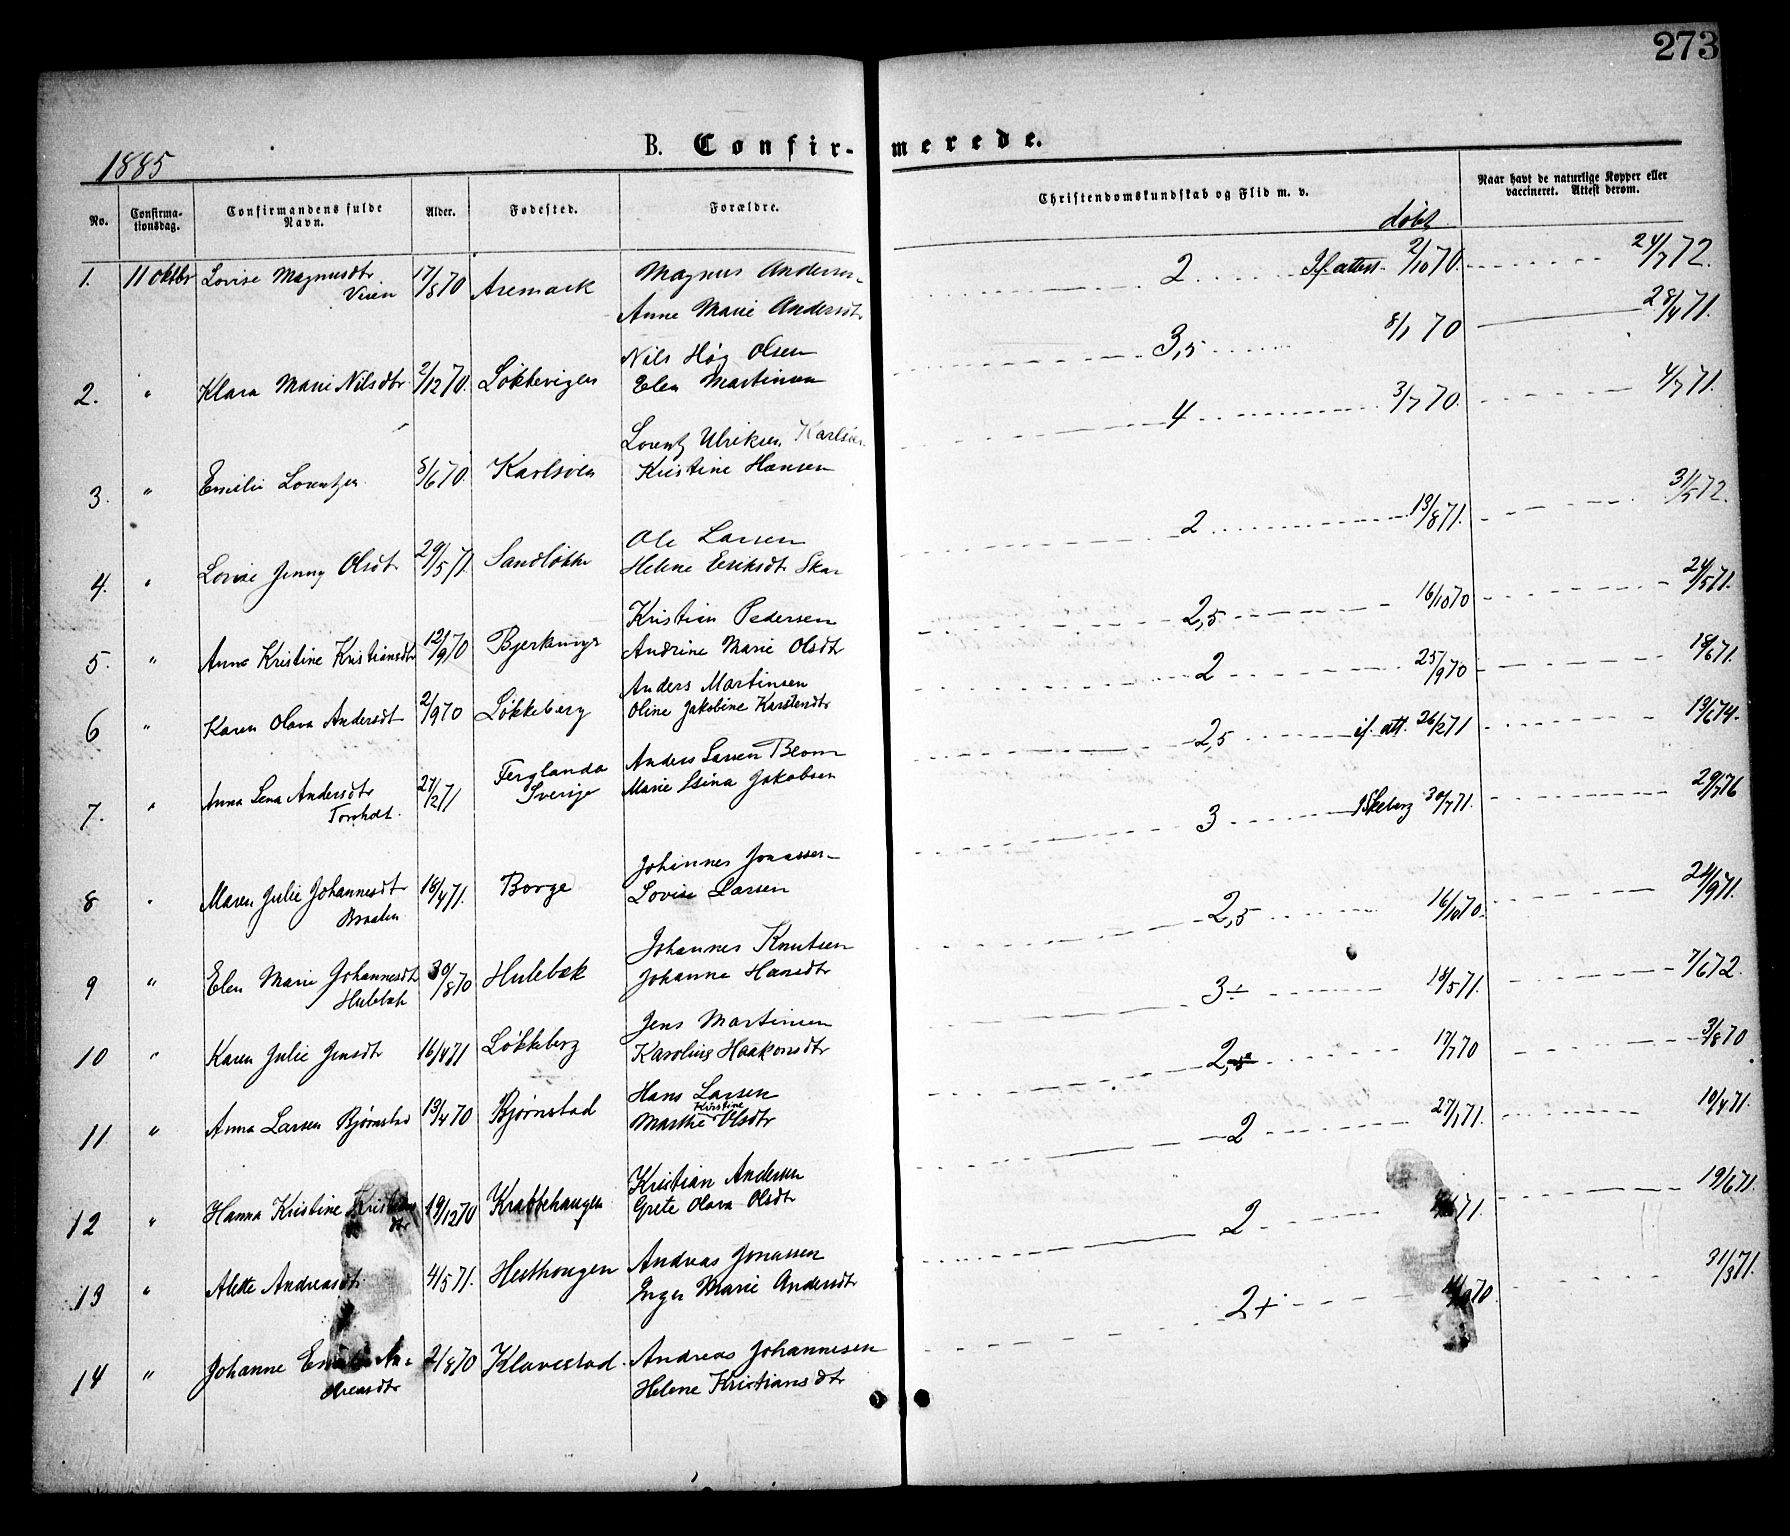 273
B. Confir- merede.
1885
No.
Confirma-
tionsdag.
Confirmandens fulde
Navn.
Alder.
Fødested.
Forældre.
Christendomskundskab og Flid m. v.
Naar havt de naturlige Kopper eller
vaccineret. Attest derom.
døbt
1. 11 oktbr Lovise Magnusdtr 17/8 70 Aremark Magnus Andersen 2 If. attest. 2/10 70. 24/7 72.
Vien
Anne Marie Andersdtr
Nils Høg Olsen 3,5 8/1 70 28/4 71.
2. " Klara Marie Nilsdtr. 2/12 70. Løkkevigen Elen Martinsen
4 3/7 70. 4/7 71.
Lorentz Ulriksen Karlsøen
3. " Emilie Lorentzen 5/6 70. Karlsøen Kristine Hansen
Ole Larsen 2 13/8 71. 31/5 72.
4. " Lovise Jenny Olsdt 29/5 71. Sandløkke Helene Eriksdt Ska-
Kristian Pedersen 2,5 16/10 70 24/5 71.
5. " Anna Kristine Kristiansdtr 12/9 70 Andrine Marie Olsdtr
Anders Martinsen 2 25/9 70 18/6 71.
6 " Karen Olava Andersdt 2/9 70 Løkkeberg Oline Jakobine Karstendtr
Anders Larsen Blom 2,5 if. att. 26/2 71 13/6 74.
7. " Anna Lena Andersdtr 27/2 71 Ferglanda
Sverige Marie Stina Jakobsen
Torpholt.
3 30/7 71. 29/7 76
Johannes Jonassen
8 " Maren Julie Johannesdtr 18/4 71. Borge Lovise Larsen
Braaten
2,5 16/10 70. 24/9 71.
Johannes Knutsen
9 " Elen Marie Johannesdtr 30/8 70 Hulebæk Johanne Hansdtr
Hulebæk
3÷ 18/5 71. 7/6 72.
Jens Martinsen
10 " Karen Julie Jensdtr 16/4 71 Løkkeberg Karoline Haakonsdtr
2,5 17/7 70 3/8 70
Hans Larsen
Kristine
11 " Anna Larsen Bjørnstad 13/4 70 Bjørnstad Marthe Olsdtr
2 27/1 71. 10/4 71.
Kristian Andersen
12 " Hanna Kristine Kristians 19/12 70 Krabbehaugen Grete Olava Olsdtr
dtr
2 71. 19/6 71.
Andreas Jonassen
13 " Alette Andreasdtr. 4/5 71. Hesthaugen Inger Marie Andersdtr
2+ 70. 31/3 71.
14 " Johanne An= 2/8 70 Klavestad. Andreas Johannesen
dreasdtr
Helene Kristiansdtr